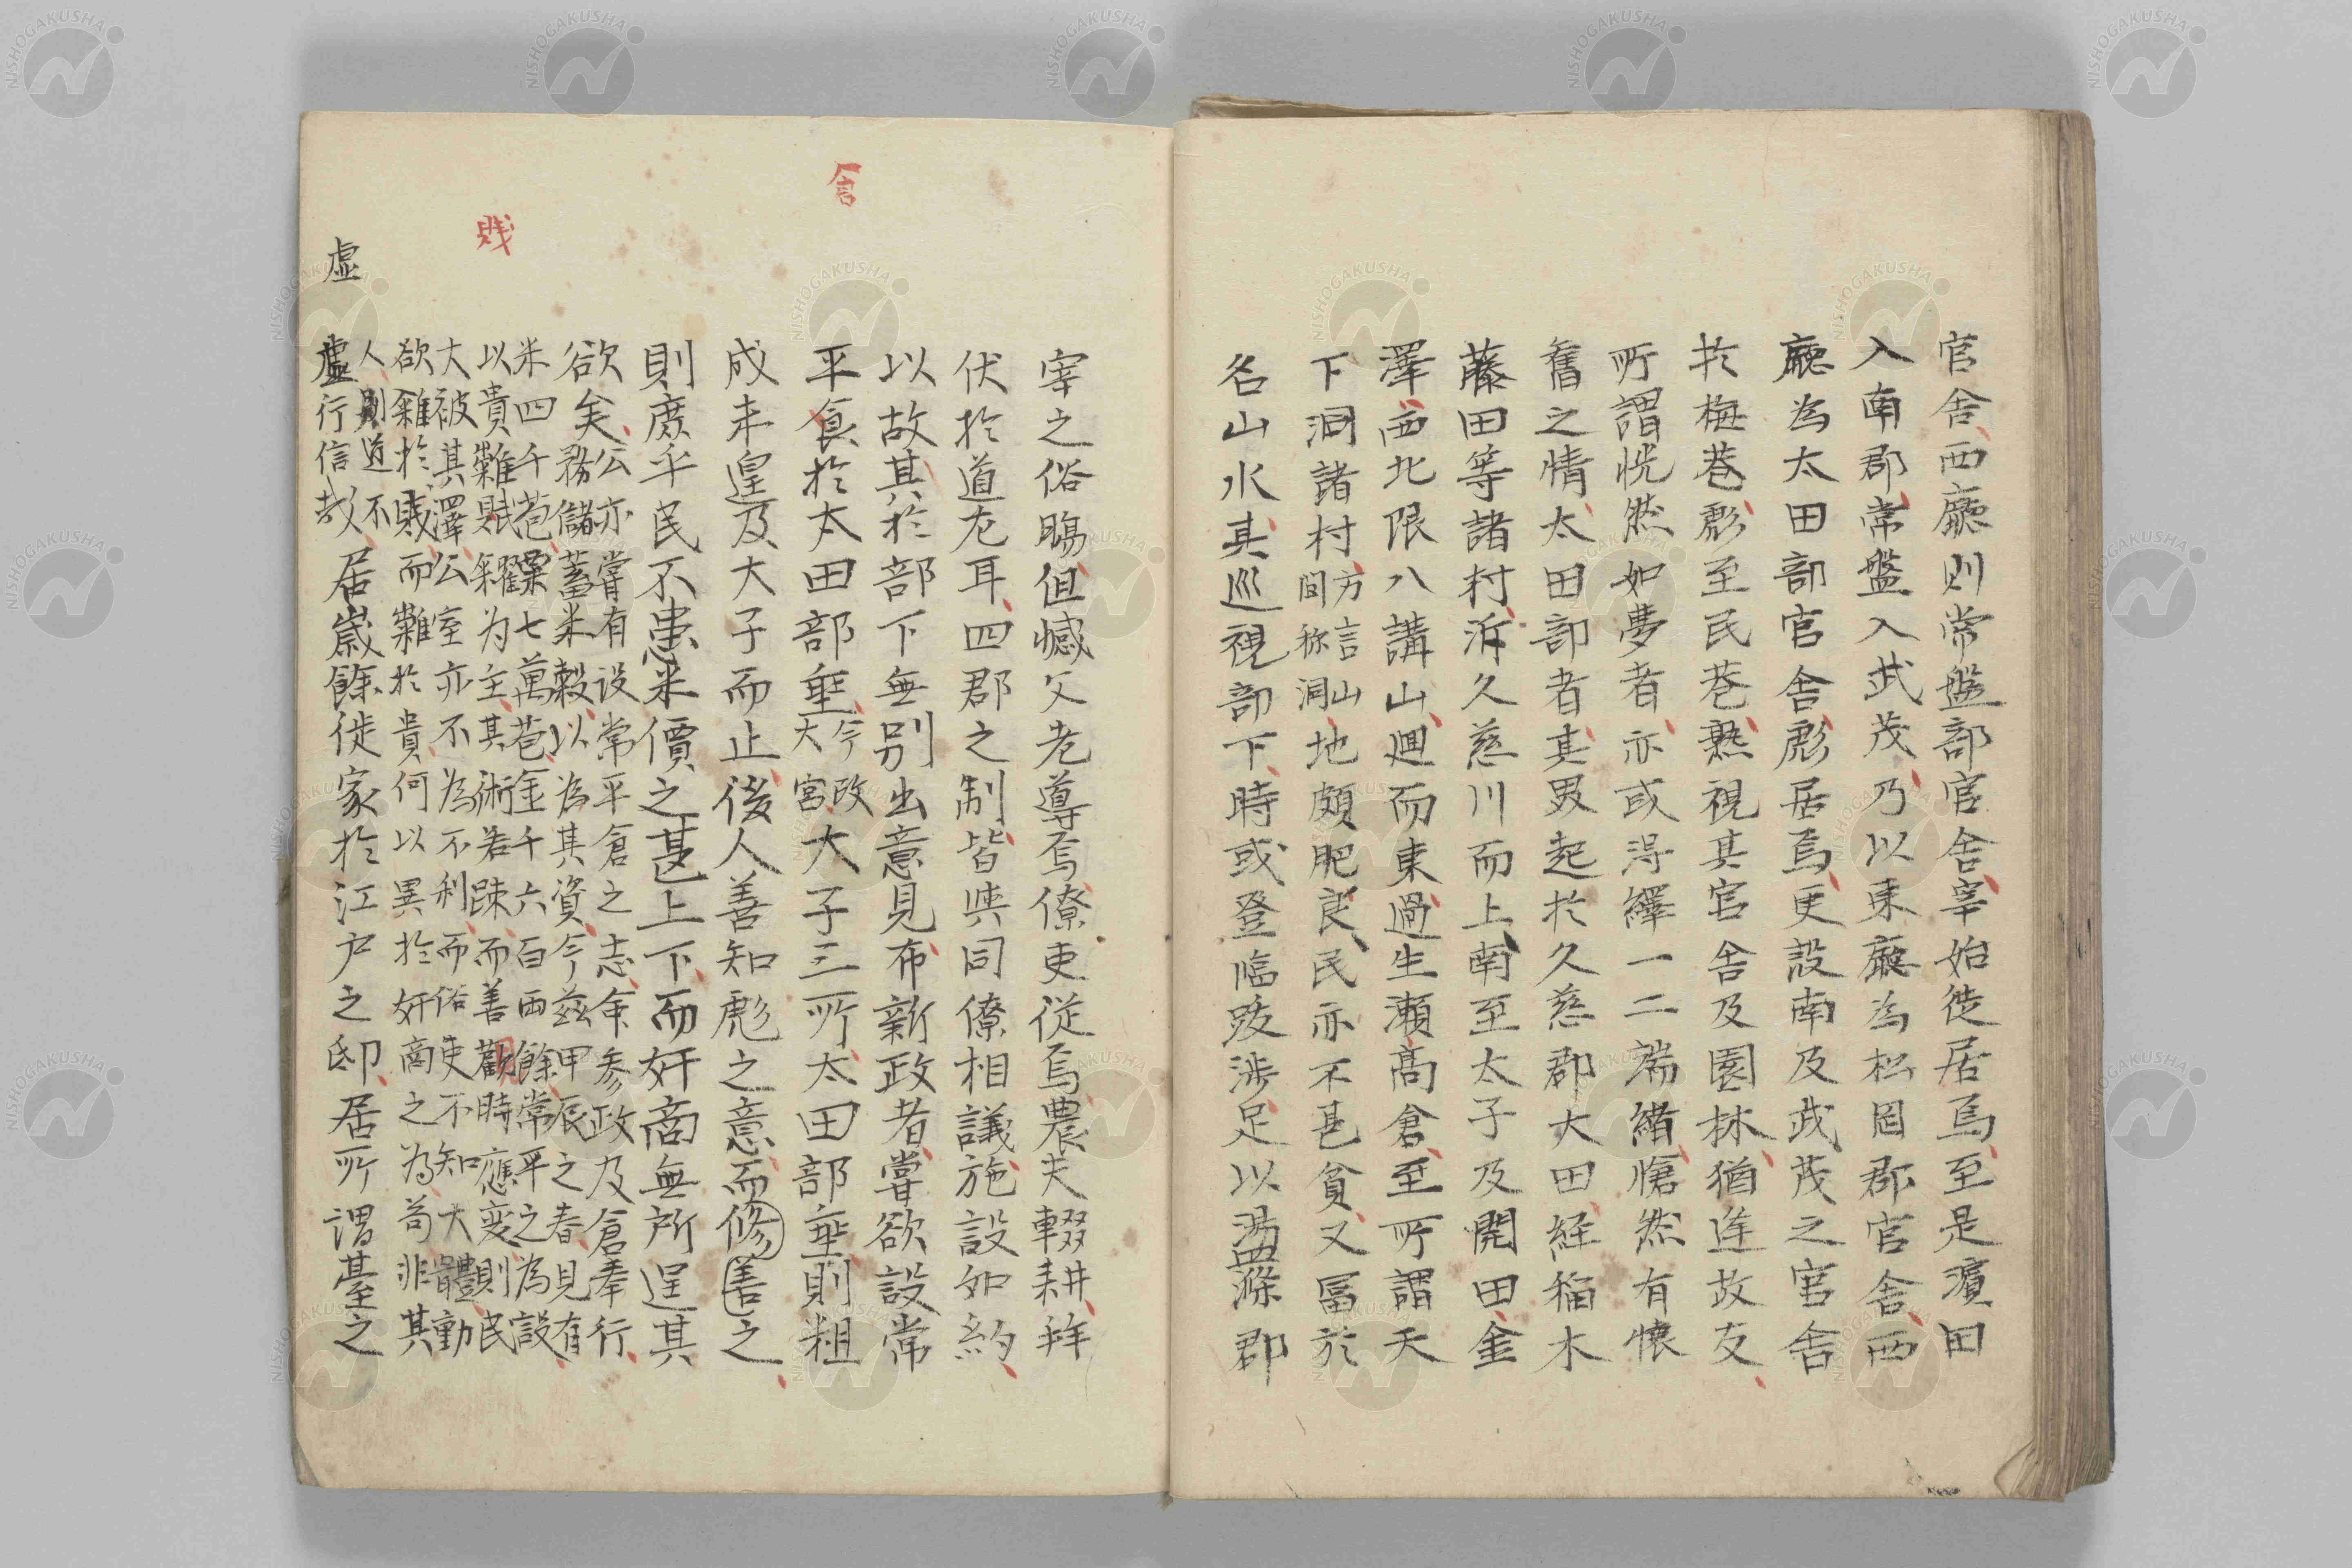 官舎西廳則常盤部官舎宰始徙居焉至是濵田
入南郡常盤入武茂乃以東廳為松岡郡官舎西
廳為太田部官舎彪居焉更設南及武茂之官舎
於梅巷彪至民巷熟視其官舎及園林猶逢故友
所謂恍然如夢者亦或得繹一二端緒愴然有懐
舊之情太田部者其界起於久慈郡大田經稲木
藤田等諸村泝久慈川而上南至太子及開田金
澤西北限八講山廻而東過生瀬高倉至所謂天
下洞諸村
方言山
間称洞
地頗肥良民亦不甚貧又冨於
名山水其巡視部下時或登臨跋渉足以盪滌郡
宰之俗賜但憾父老尊焉僚吏従焉農夫輟耕拜
伏於道左耳四郡之制皆與同僚相議施設如約
以故其於部下無別出意見布新政者嘗欲設常
平倉於太田部垂
今改
大宮
大子三所太田部垂則粗
成未遑及大子而止後人善知彪之意而修善之
則庶乎民不患米價之甚上下而奸商無所逞其
欲矣
公亦嘗有設常平倉之志余参政及倉奉行
務儲蓄米穀以為其資今茲甲辰之春見有
米四千苞粟七萬苞金千六百両餘常平之為設
以貴糶賎糴为主其術若踈而善勸時應変則民
大被其澤公室亦不為不利而俗吏不知大體動
欲糴於賎而糶於貴何以異於奸商之為苟非其
人則道不
虚行信哉
居歳餘徙家於江戸之邸居所謂臺之
舎
賎
虚